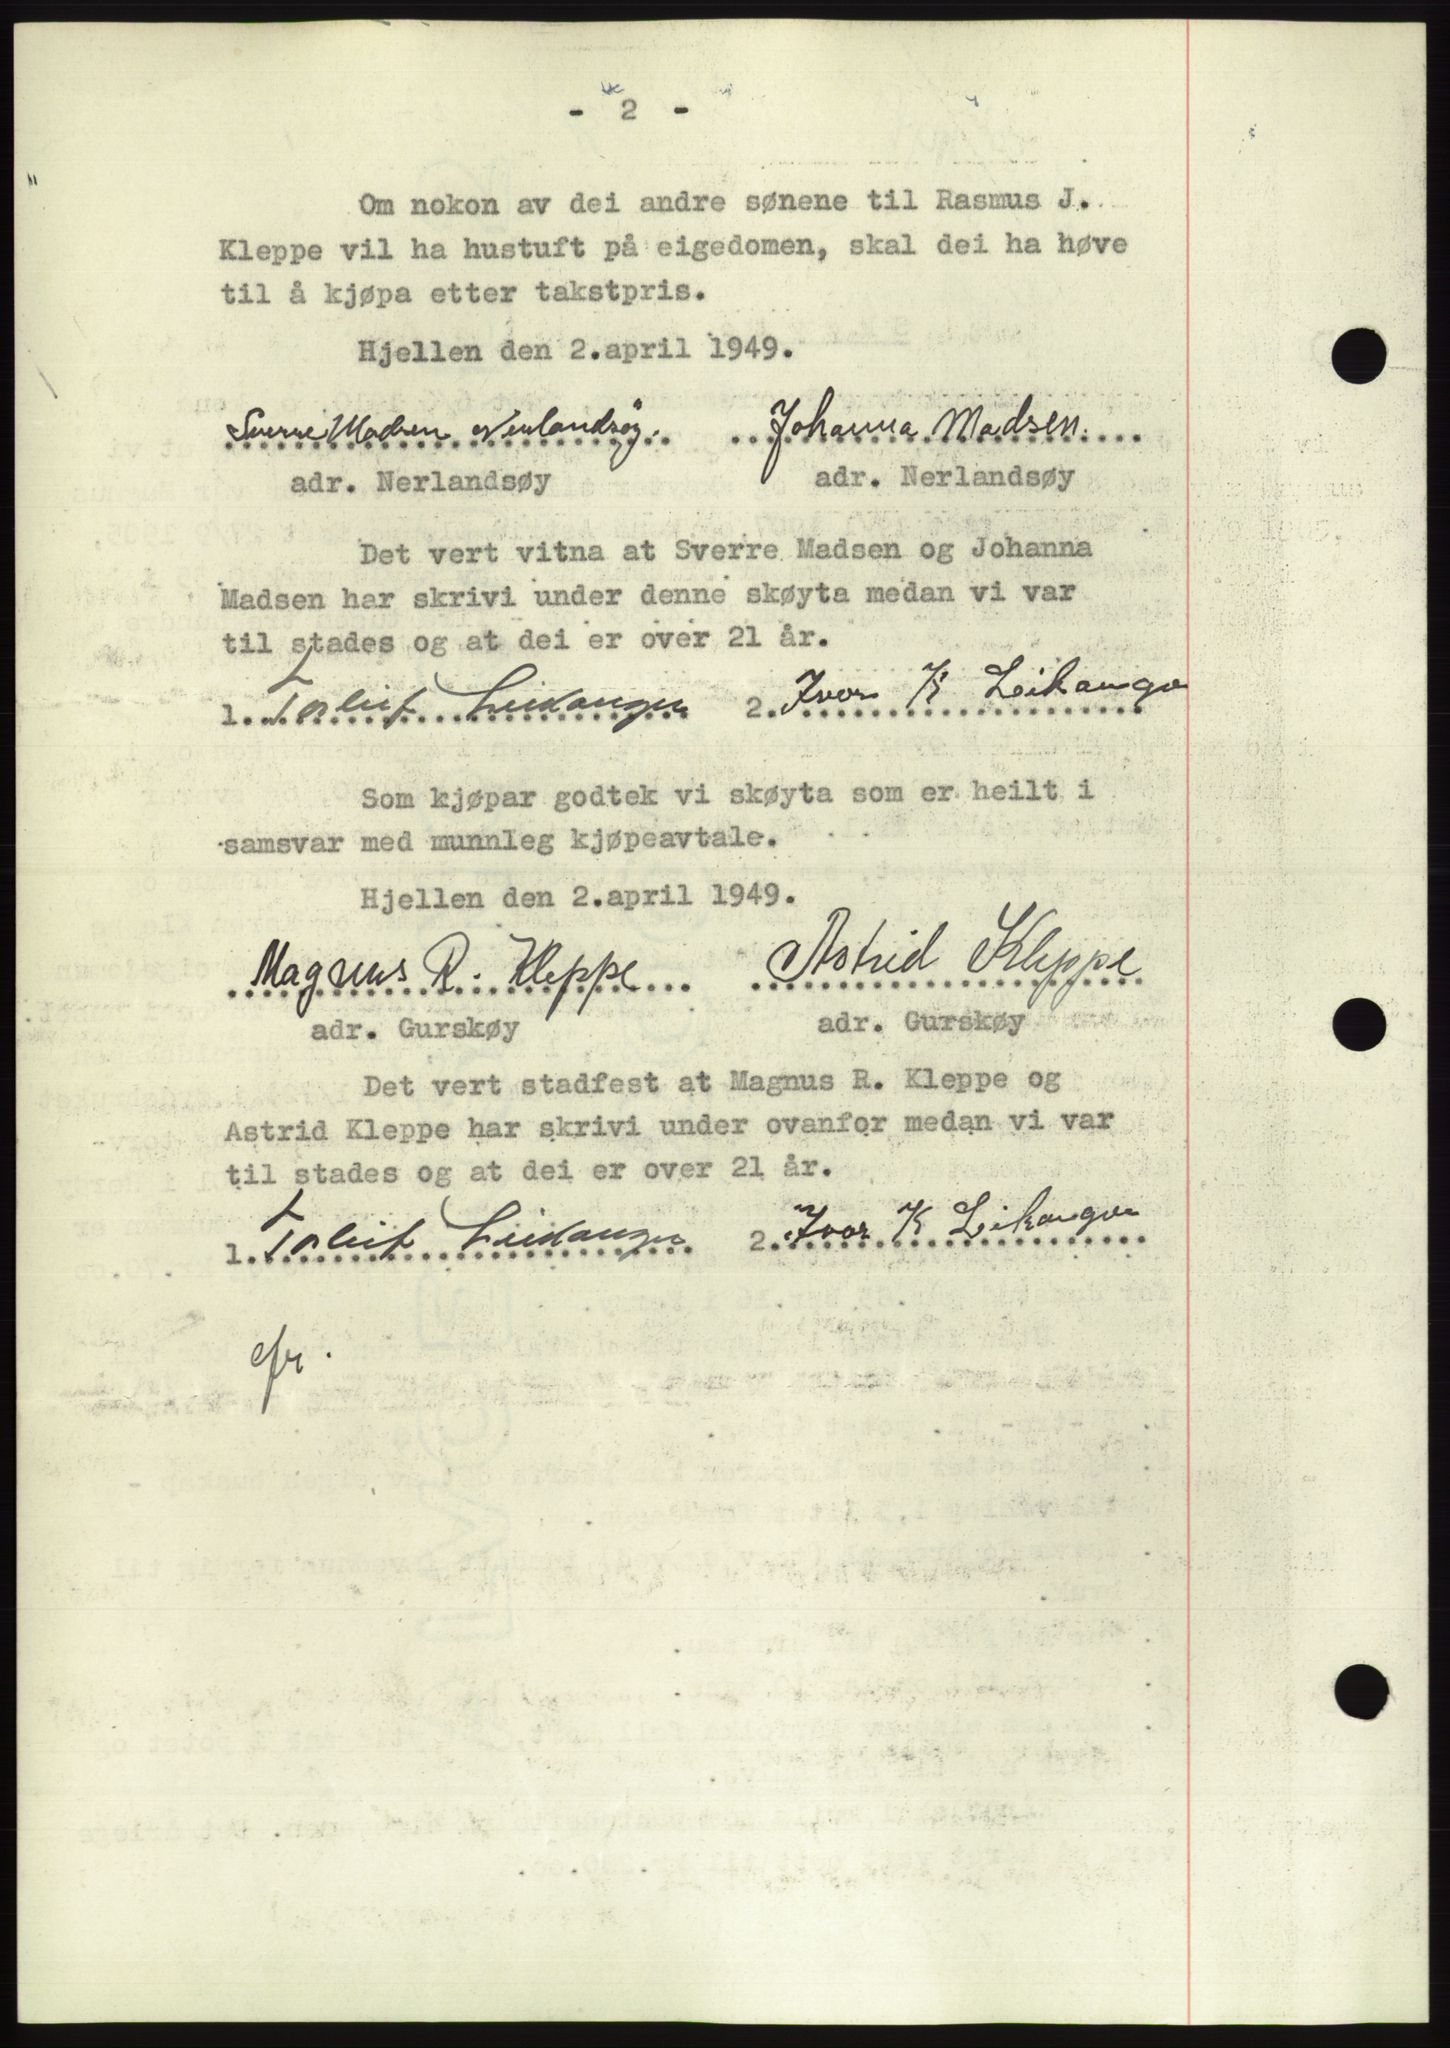 - 2 -
Om nokon av dei andre sønene til Rasmus J.
Kleppe vil ha hustuft på eigedomen, skal dei ha høve
til å kjøpa etter takstpris.
Hjellen den 2.april 1949.
Sverre Madsen Nerlandsøy. Johanna Madsen.
adr. Nerlandsøy adr. Nerlandsøy
Det vert vitna at Sverre Madsen og Johanna
Madsen har skrivi under denne skøyta medan vi var
til stades og at dei er over 21 år.
1. Torleif Leikanger 2. Ivar K Leikanger
Som kjøpar godtek vi skøyta som er heilt i
samsvar med munnleg kjøpeavtale.
Hjellen den 2.april 1949.
Magnus R. Kleppe Astrid Kleppe
adr. Gurskøy adr. Gurskøy
Det vert stadfest at Magnus R. Kleppe og
Astrid Kleppe har skrivi under ovanfor medan vi var
til stades og at dei er over 21 år.
1. Torleif Leikanger 2. Ivar K Leikanger